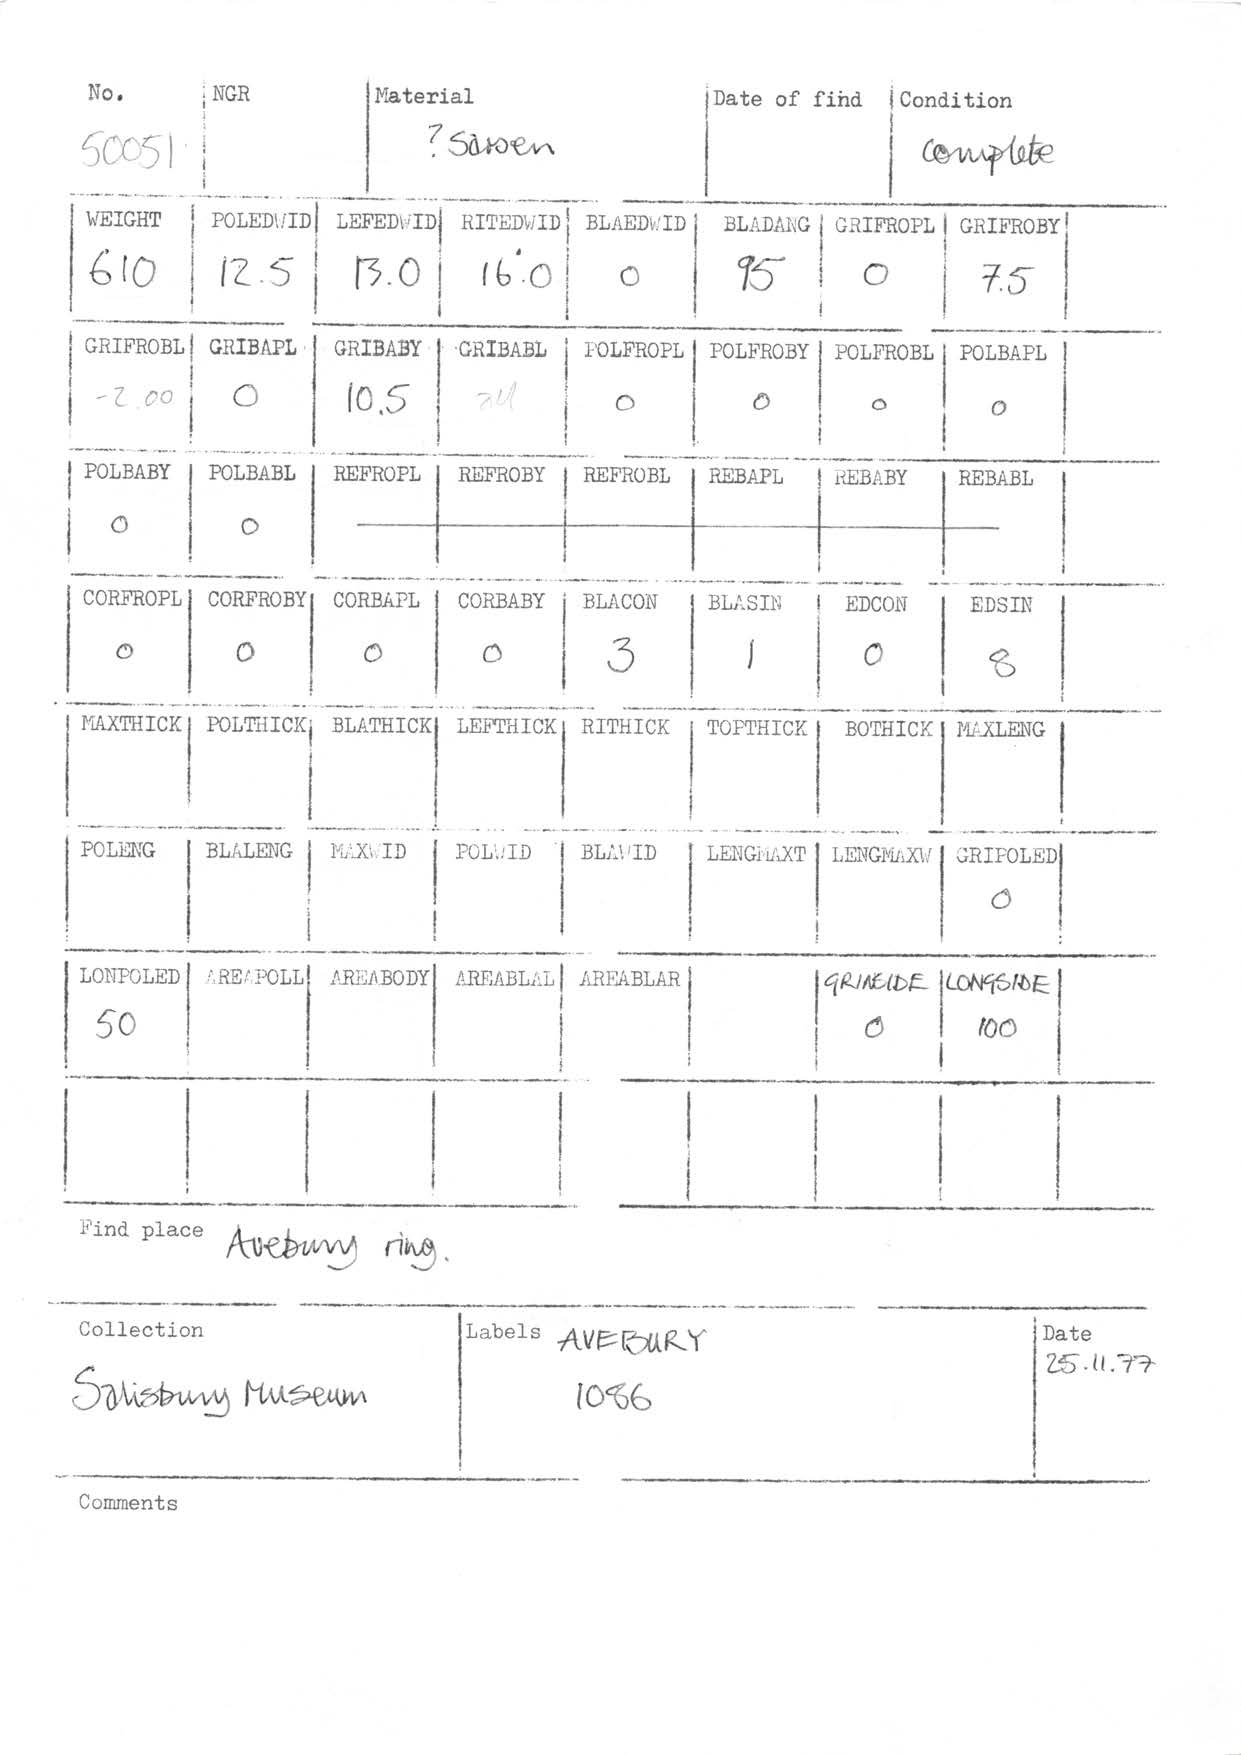 No. NGR Material Date of find Condition
50051 ? Sarsen complete
WEIGHT POLEDWID LEFEDWID RITEDWID BLAEDWID BLADANG GRIFROPL GRIFROBY
610 12.5 13.0 16.0 0 95 0 7.5
GRIFROBL GRIBAPL GRIBABY GRIBABL POLFROPL POLFROBY POLFROBL POLBAPL
-2.00 0 10.5 0 0 0 0
POLBABY POLBABL REFROPL REFROBY REFROBL REBAPL REBABY REBABL
0 0
CORFROPL CORFROBY CORBAPL CORBABY BLACON BLASIN EDCON EDSIN
0 0 0 0 3 1 0 8
MAXTHICK POLTHICK BLATHICK LEFTHICK RITHICK TOPTHICK BOTHICK MAXLENG
POLENG BLALENG MAXWID POLWID BLAWID LENGMAXT LENGMAXW GRIPOLED
0
LONPOLED AREAPOLL AREABODY AREABLAL AREABLAR GRINSIDE LONGSIDE
50 0 100
Find place Avebury ring.
Collection Labels AVEBURY Date
25.11.77
Salisbury Museum 1086
Comments